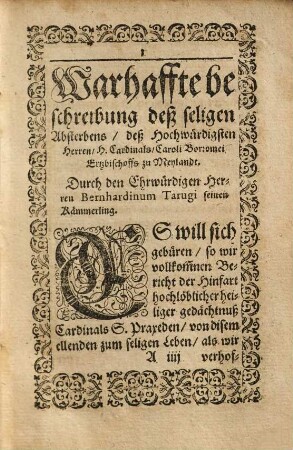 1
Warhaffte be
schreibung deß seligen
Absterbens / deß Hochwürdigsten
Herren / H. Cardinals / Caroli Borromei
Ertzbischoffs zu Meylandt.
Durch den Ehrwürdigen Her-
ren Bernhardinum Tarugi seinen
Kämmerling.
ES will sich
gebüren / so wir
vollkom̃nen Be-
richt der Hinfart
hochlöblicher hei-
liger gedächtnuß
Cardinals S. Praxeden / von disem
ellenden zum seligen Leben / als wir
A iiij verhof-